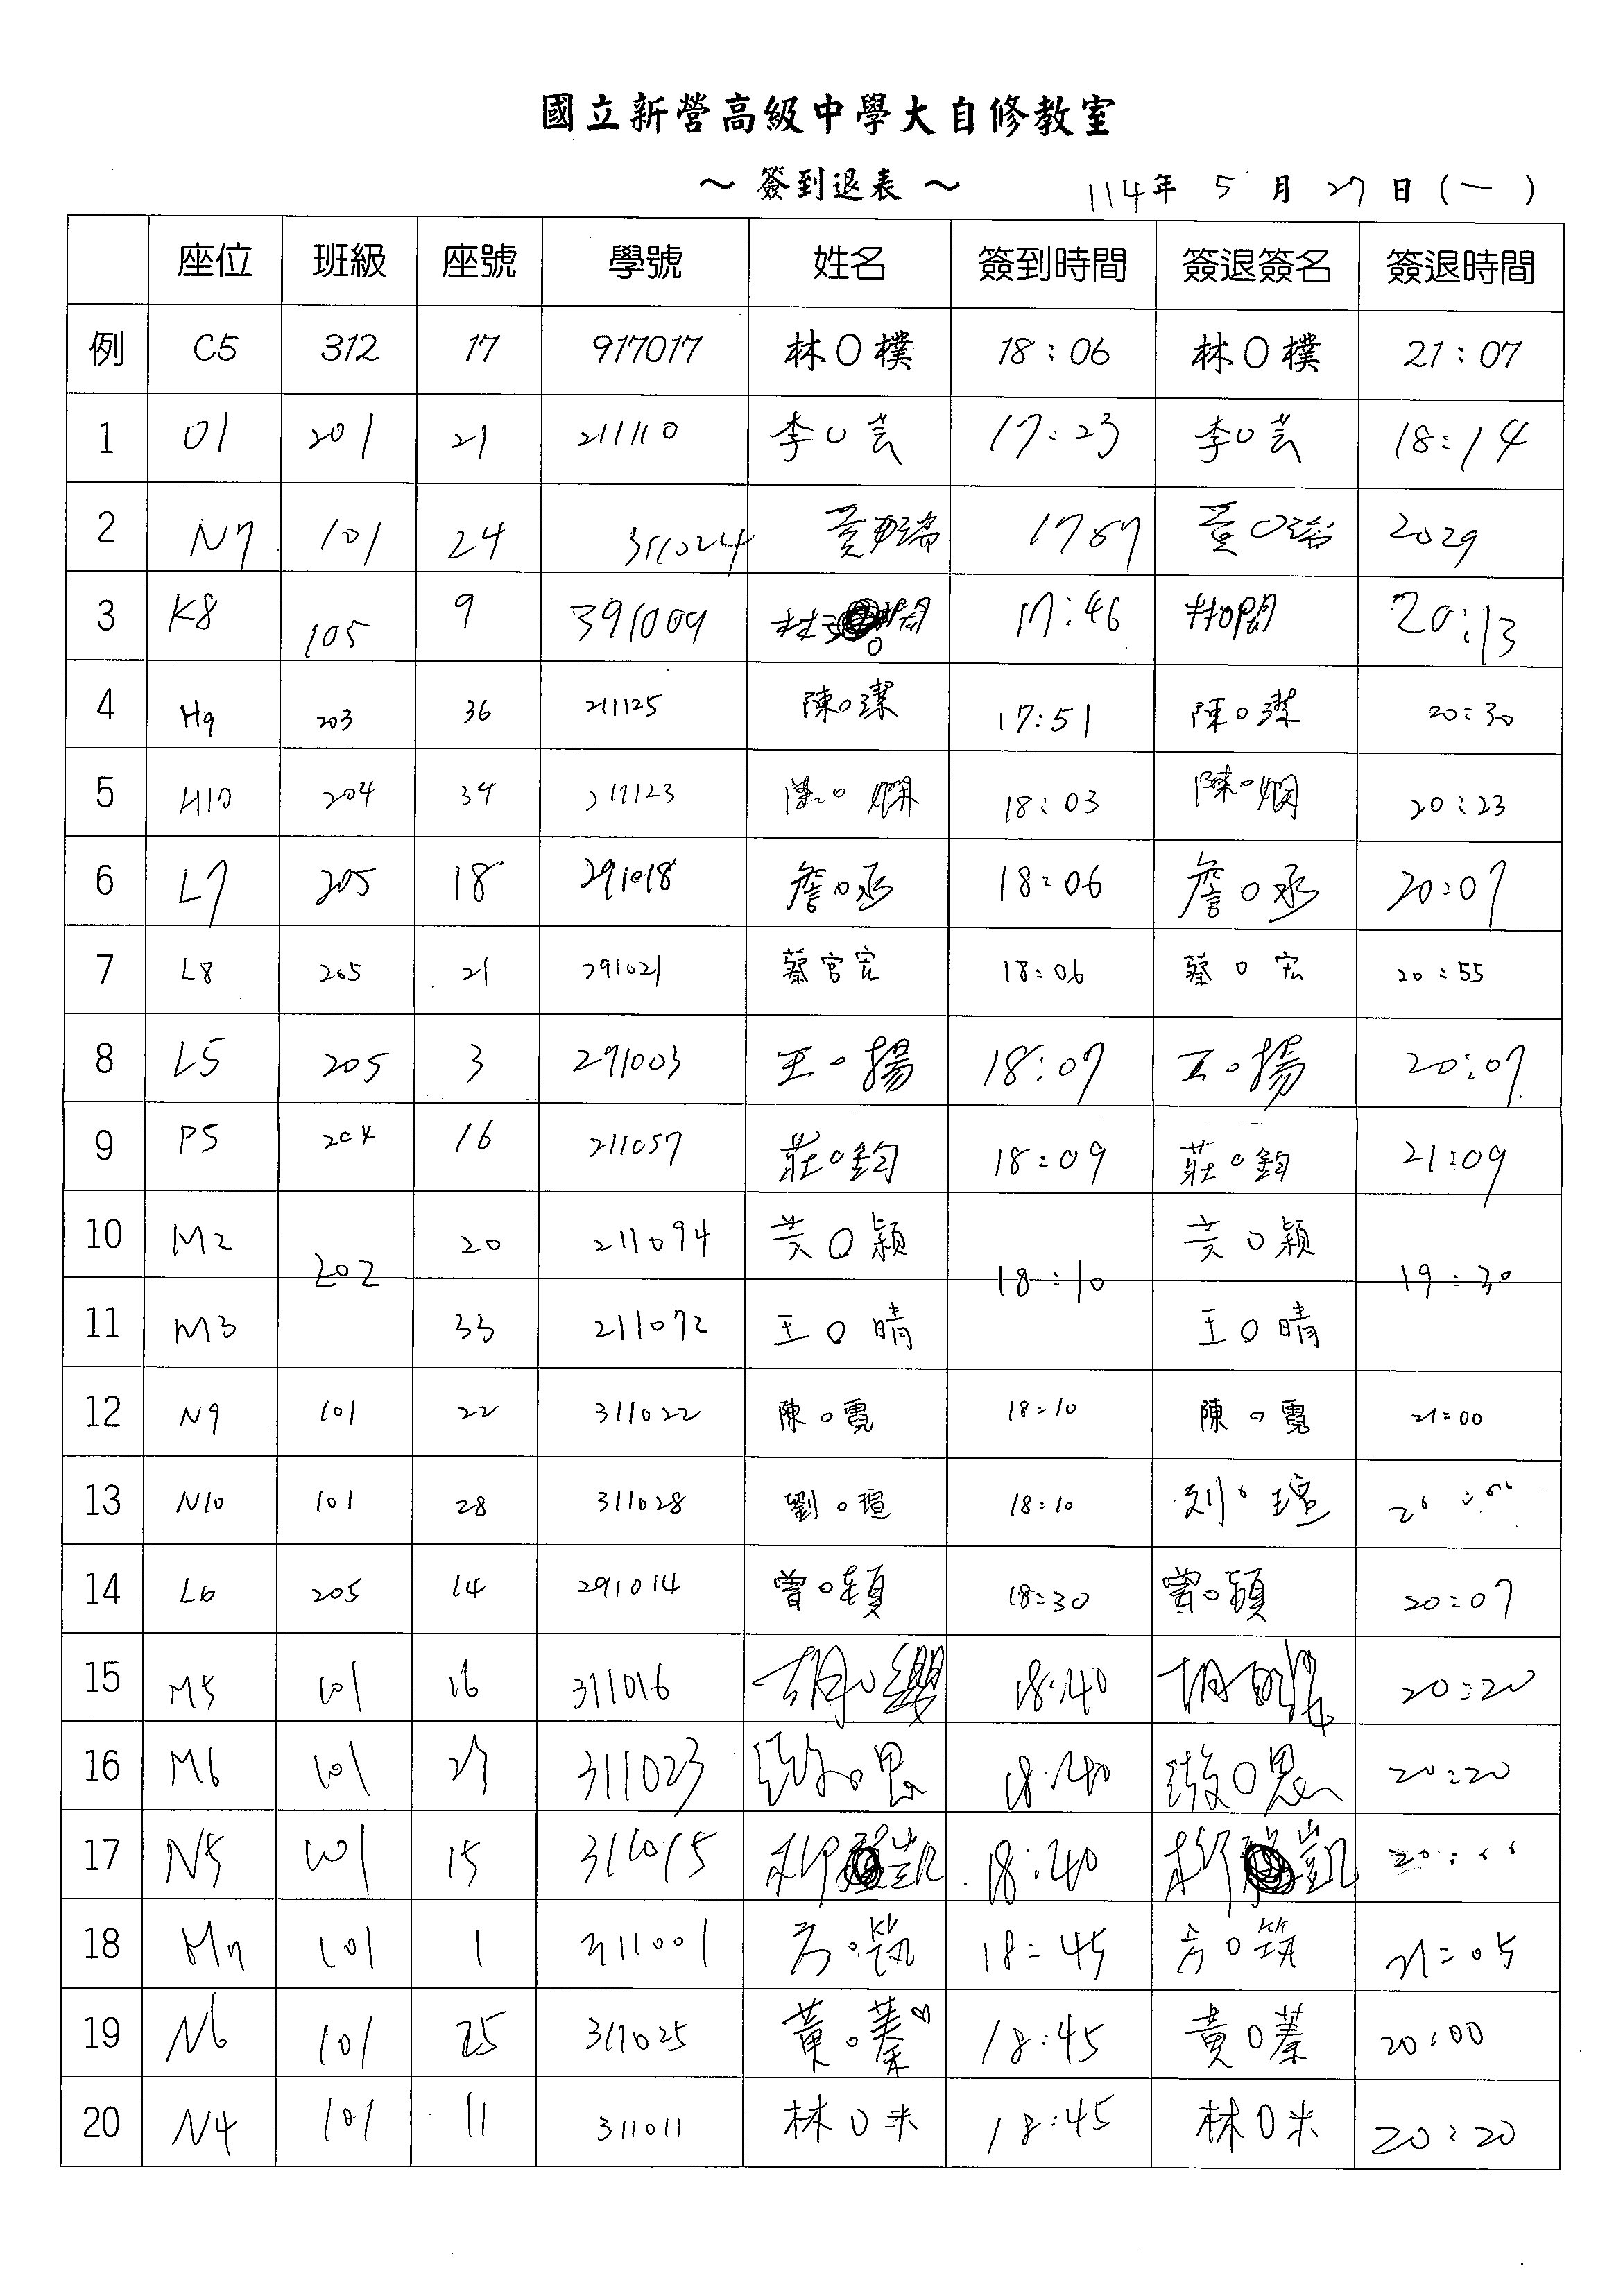 國立新營高級中學大自修教室
～ 簽到退表 ～ 114年 5 月 27 日 (一)
座位 班級 座號 學號 姓名 簽到時間 簽退簽名 簽退時間
例 C5 312 17 917017 林O樸 18:06 林O樸 21:07
1 O1 201 21 211110 李O芸 17:23 李O芸 18:14
2 N7 101 24 311024 黃 瑞 黃O瑞 2029
3 K8 105 9 391009 林 17:46 林O 20:13
4 H9 203 36 211125 陳O潔 17:51 陳O潔 20:30
5 H10 204 34 211123 陳O嫻 18:03 陳O嫻 20:23
6 L7 205 18 291018 詹O丞 18:06 詹O丞 20:07
7 L8 205 21 291021 蔡官宏 18:06 蔡O宏 20:55
8 L5 205 3 291003 王O揚 18:07 王O揚 20:07
9 P5 204 16 211057 莊O鈞 18:09 莊O鈞 21:09
10 M2 202 20 211094 黃O穎 18:10 黃O穎 19:30
11 M3 33 211072 王O晴 王O晴
12 N9 101 22 311022 陳O霓 18:10 陳O霓 21:00
13 N10 101 28 311028 劉O瑄 18:10 刘O瑄
14 L6 205 14 291014 曾O穎 18:30 曾O穎 20:07
15 M5 101 16 311016 胡O 18:40 胡 20:20
16 M6 101 23 311023 O恩 18:40 O恩 20:20
17 N5 101 15 311015 柳 凱 18:40 柳 凱
18 M7 101 1 311001 方O筑 18:45 方O筑 21:05
19 N6 101 25 311025 黃O蓁♡ 18:45 黃O蓁 20:00
20 N4 101 11 311011 林O米 18:45 林O米 20:20